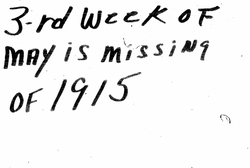 3-rd week of
may is missing
of 1915